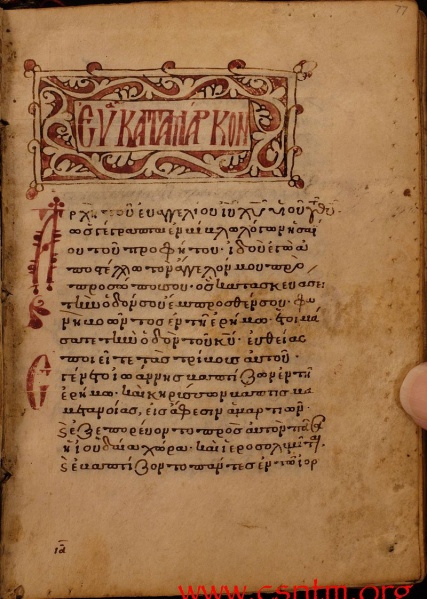 77
ΕΥΑ ΚΑΤΑ ΜΑΡΚΟΝ
Ἀρχὴ τοῦ εὐαγγελίου ἰῦ χῦ υἱοῦ θῦ·
ὡς γέγραπται ἐν βίβλω λόγων ἡσαΐ
ου τοῦ προφήτου· ἰδοὺ ἐγὼ ἀ
ποστέλλω τὸν ἄγγελόν μου πρὸ
προσώπου σου· ὃς κατασκευάσει
τὴν ὁδόν σου ἔμπροσθέν σου· φω
νὴ βοῶντος ἐν τῆ ἐρήμω· ἑτοιμά
σατε τὴν ὁδὸν τοῦ κῦ· εὐθείας
ποιεῖτε τὰς τρίβους αὐτοῦ·
Ἐγένετο ἰωάννης βαπτίζων ἐν τῆ
ἐρήμω· καὶ κηρίσσων βάπτισμα
μετανοίας, εἰς ἄφεσιν ἁμαρτιῶν·
καὶ ἐξεπορεύοντο πρὸς αὐτὸν πᾶσα
ἡ ἰουδαία χώρα· καὶ ἱεροσολυμῖται·
καὶ ἐβαπτίζοντο πάντες ἐν τῶ ἰορ
ια
www.csntm.org